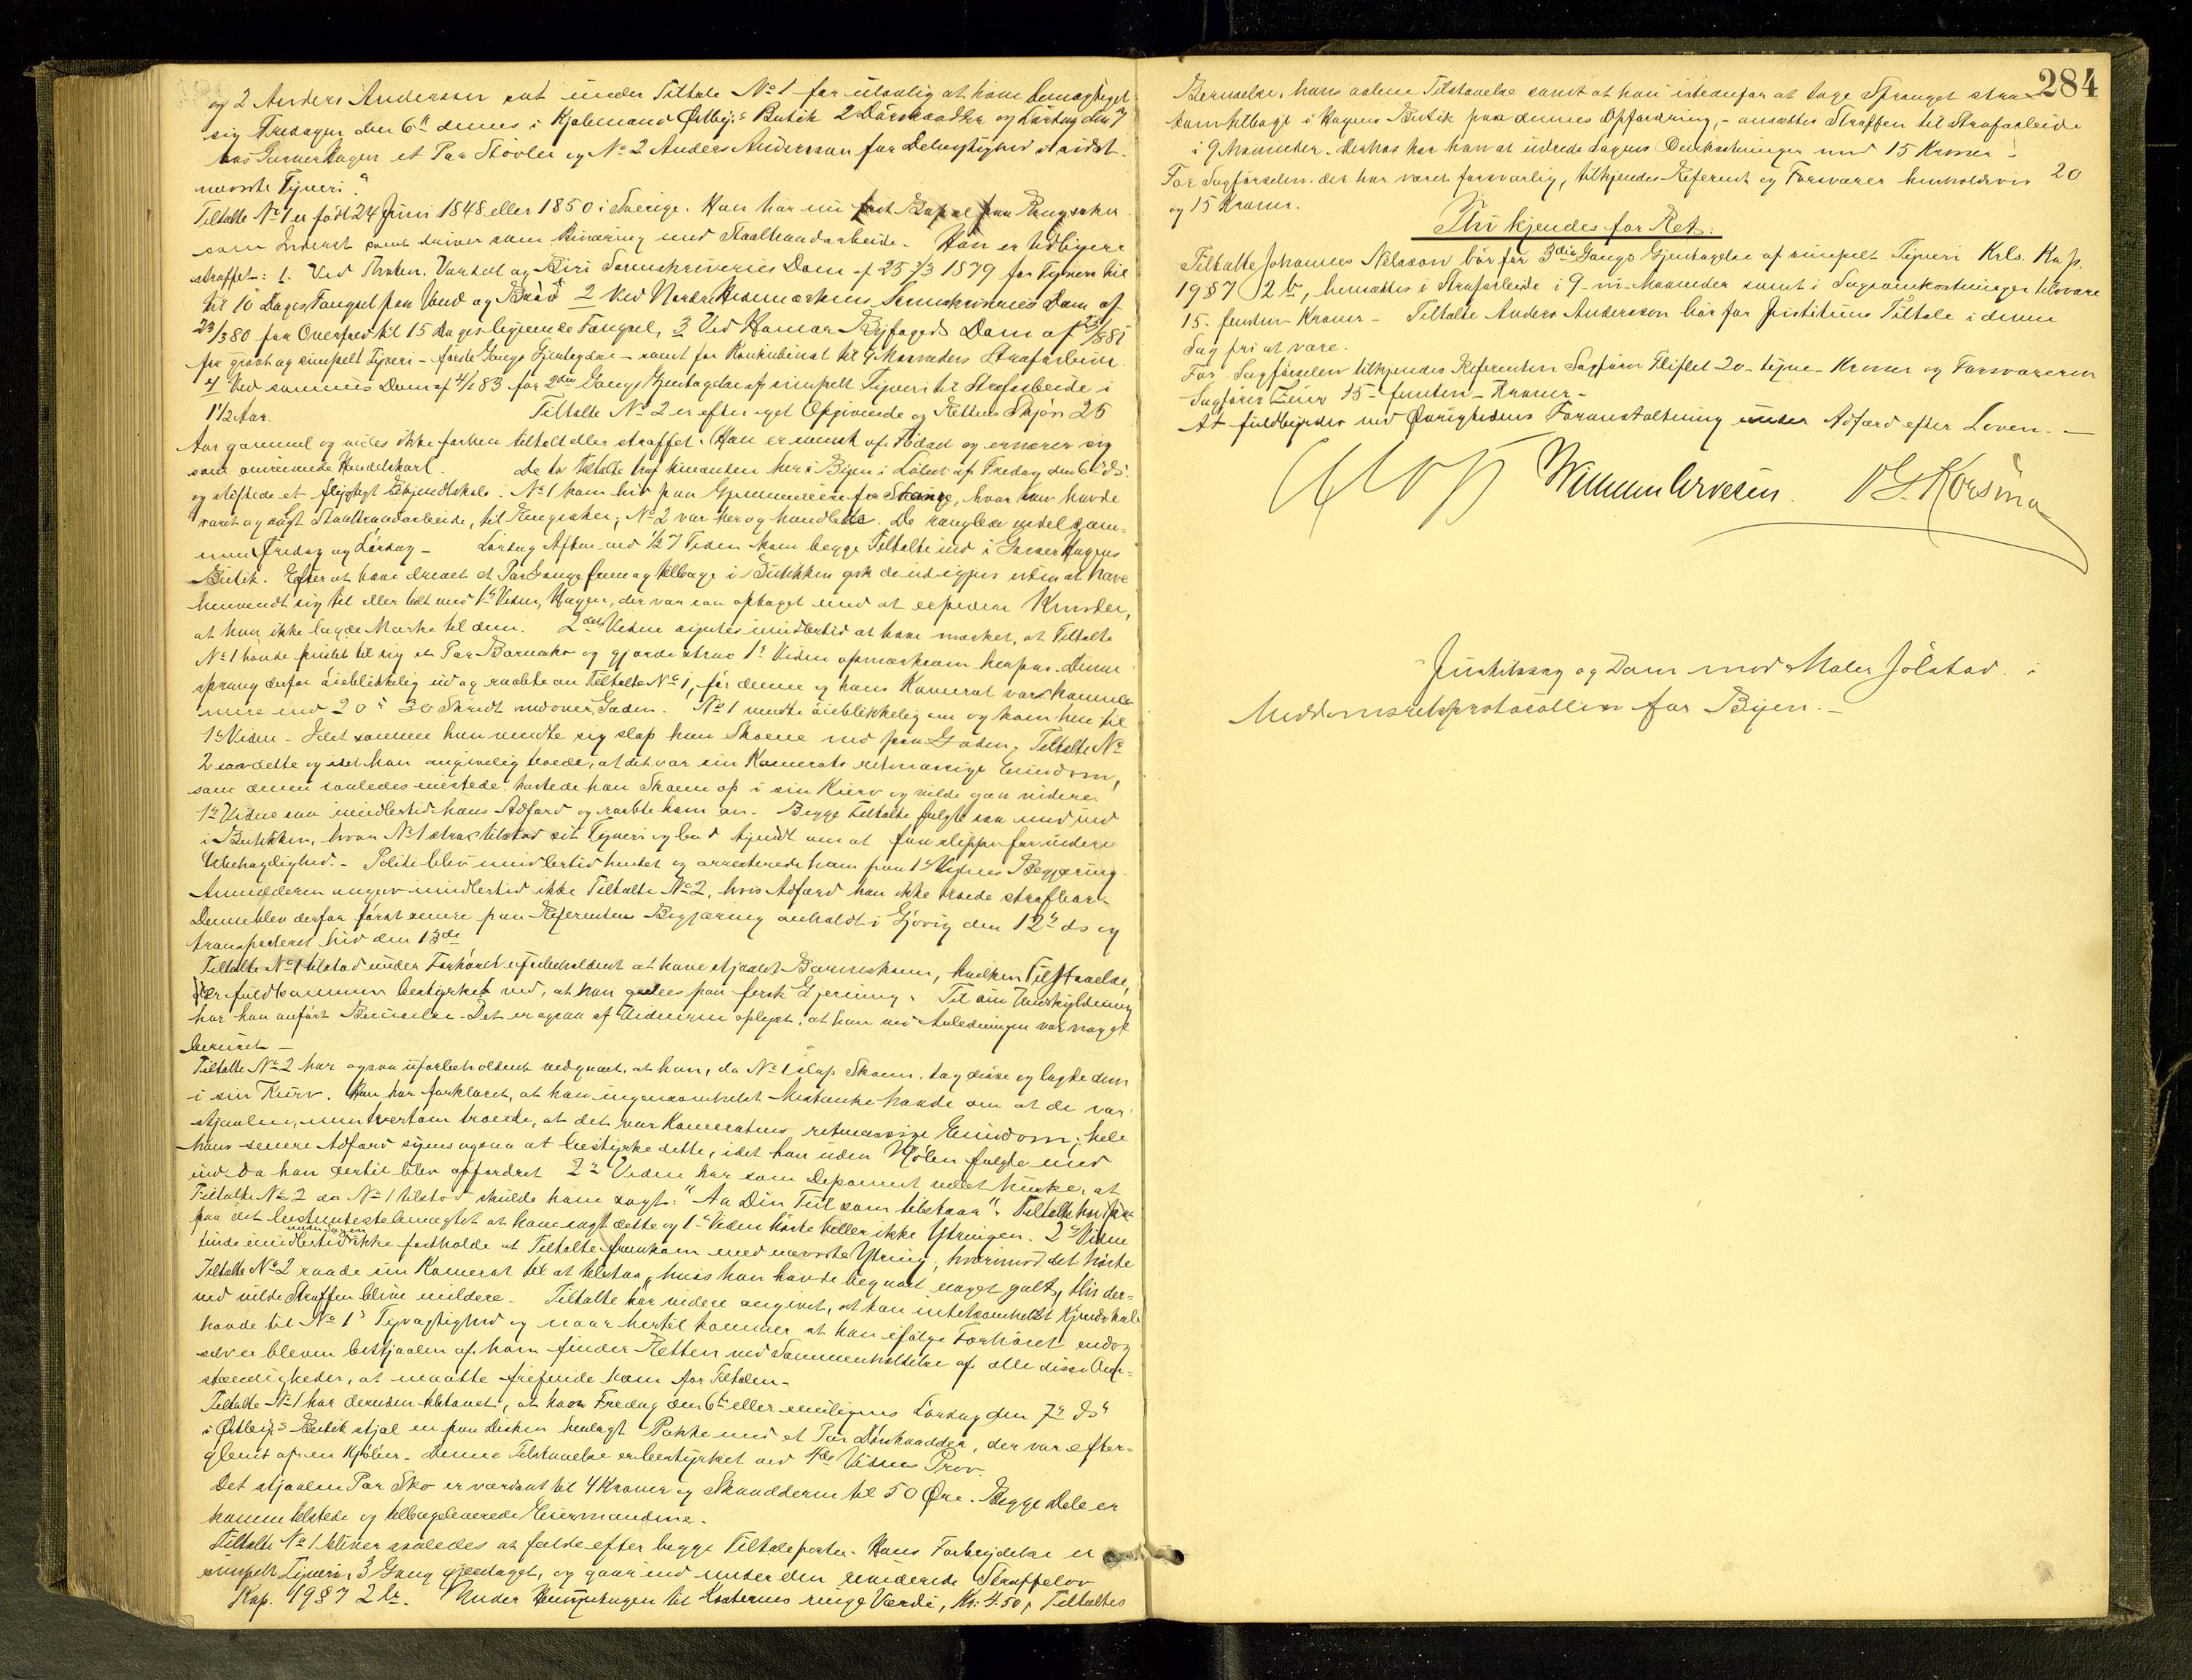 og 2 Anders Andersson sat under Tiltale No 1 for ulovlig at have bemægtiget
sig Fredagen den 6te dennes i Kjøbmand Østbyes Butik 2 Dørskaadder og Lørdag den 7
hos Garver Hagen et Par Støvler og No 2 Anders Andersson for Delagtighed i sidst-
nævnte Tyveri."
Tiltalte No 1 er født 24 Juni 1848 eller 1850 i Sverige. Han har nu fast Bopæl paa Ringsaker
som Inderst samt driver som Binæring med Staaltraadarbeide. Han er tidligere
straffet: 1. Ved Thoten, Vardal og Biri Sorenskriveries Dom af 25/3 1879 for Tyveri til
til 10 Dages Fængsel paa Vand og Brød 2 Ved Nordre Hedemarkens Sorenskriveries Dom af
23/3 80 for Overfred til 15 Dages lignende Fængsel, 3 Ved Hamar Byfogeds Dom af
for grovt og simpelt Tyveri – første Gangs Gjentagelse – samt for Konkubinat til 9 Maaneders Strafarbeide.
4 Ved sammes Dom af 4/1 83 for 2den Gangs Gjentagelse af simpelt Tyveri til Strafarbeide i
1 1/2 Aar. Tiltalte No 2 er efter eget Opgivende og Rettens Skjøn 25
Aar gammel og vides ikke forhen tiltalt eller straffet. Han er svensk af Fødsel og ernærer sig
som omreisende Handelskarl. De to Tiltalte traf hinanden her i Byen i Løbet af Fredag den 6te ds.
og stiftede et flygtigt Bekjendtskab. No 1 kom hid paa Gjennemreise fra Stange, hvor han havde
været og solgt Staaltraadarbeide, til Ringsaker; No 2 var her og handlede. De ranglede endel sam-
men Fredag og Lørdag – Lørdag Aften ved 1/2 7 Tiden kom begge Tiltalte ind i Garver Hagens
Butik. Efter at have drevet et Par Gange frem og tilbage i Butikken gik de ud igjen uden at have
henvendt sig til eller talt med 1te Vidne, Hagen, der var saa optaget med at expedere Kunder,
at han ikke lagde Mærke til dem. 2det Vidne sigtes imidlertid at have mærket, at Tiltalte
No 1 havde pustet til sig et Par Barnesko og gjorde strax 1te Vidne opmærksom herpaa. Denne
sprang derfor øieblikkelig ud og raabte an Tiltalte No 1, før denne og hans Kamerat var kommen
mere end 20 à 30 Skridt nedover Gaden. No 1 vendte øieblikkelig om og kom hen til
1te Vidne – Idet samme han vendte sig slap han Skoene ned paa Gaden; Tiltalte No
2 saa dette og idet han angivelig troede, at det var sin Kamerats retmæssige Eiendom,
som denne saaledes mistede, kastede han Skoene op i sin Kurv og vilde gaa videre.
1te Vidne saa imidlertid hans Adfærd og raabte ham an. Begge Tiltalte fulgte saa med ind
i Butikken, hvor No 1 strax tilstod sit Tyveri og bad tyndt om at faa slippe for videre
Ubehagelighed. – Politi blev imidlertid hentet og arresterede ham paa 1te Vidnes Begjæring.
Anmelderen angav imidlertid ikke Tiltalte No 2, hvis Adfærd han ikke troede strafbar.
Denne blev derfor først senere paa Referentens Begjæring anholdt i Gjøvig den 12te ds og
transporteret hid den 13de
Tiltalte No 1 tilstod under Forhøret uforbeholdent at have stjaalet Barneskoene, hvilken Tilstaaelse,
er fuldkommen bestyrket ved, at han grebes paa fersk Gjerning. Til sin Undskyldning
har han anført Beruselse. Det er ogsaa af Vidnerne oplyst, at han ved Anledningen var noget
beruset –
Tiltalte No 2 har ogsaa uforbeholdent vedgaaet, at han, da No 1 slap Skoene, tog disse og lagde dem
i sin Kurv. Han har forklaret, at han ingensomhelst Mistanke havde om at de var
stjaalne, men tvertom troede, at det var Kameratens retmæssige Eiendom; hele
hans senere Adfærd synes ogsaa at bestyrke dette, idet han uden Nølen fulgte med
ind da han dertil blev opfordret 2te Vidne har som Deponent villet huske, at
Tiltalte No 2 da No 1 tilstod skulde have sagt: "Aa Din Tul som tilstaar". Tiltalte har
paa det bestemteste benægtet at have sagt dette og 1te Vidne hørte heller ikke Ytringen. 2te Vidne
turde imidlertid under Sagen ikke fastholde at Tiltalte fremkom med nævnte Ytring, hvorimod det hørte
Tiltalte No 2 raade sin Kamerat til at tilstaa, "hvis han havde begaaet noget galt, thi der-
ved vilde Straffen blive mildere. Tiltalte har videre angivet, at han intetsomhelst Kjendskab
havde til No 1s Tyvagtighed og naar hertil kommer at han ifølge Forhøret endog
selv er bleven bestjaalen af ham finder Retten ved Sammenholdelse af alle disse Om-
stændigheder, at maatte frifinde ham for Tiltalen –
Tiltalte No 1 har desuden tilstaaet, at have Fredag den 6te eller muligens Lørdag den 7de ds
i Østbyes Butik stjal en paa Disken henlagt Pakke med et Par Dørskaadder, der var efter-
glemt af en Kjøber. Denne Tilstaaelse er bestyrket ved 4de Vidnes Prov.
Det stjaalne Par Sko er værdsat til 4 Kroner og Skaadderne til 50 Øre. Begge Dele er
kommen tilstede og tilbageleverede Eiermændene.
Tiltalte No 1 bliver saaledes at fælde efter begge Tiltaleposter. Hans Forbrydelse er
simpelt Tyveri, 3 Gang gjentaget, og gaar ind under den reviderede Straffelov
Kap. 19 § 7 2 Ltr. Under Hensyntagen til Kosternes ringe Værdi, Kr: 4.50, Tiltaltes
284
Beruselse, hans aabne Tilstaaelse samt at han istedenfor at tage Spranget strax
kom tilbage i Hagens Butik paa dennes Opfordring, – ansættes Straffen til Strafarbeide
i 9 Maaneder. Derhos har han at udrede Sagens Omkostninger med 15 Kroner –
For Sagførselen, der har været forsvarlig, tilkjendes Referent og Forsvarer henholdsvis 20
og 15 Kroner.
Thi kjendes for Ret:
Tiltalte Johannes Nilsson bør for 3die Gangs Gjentagelse af simpelt Tyveri Krls. Kap.
19 § 7 2 b, hensættes i Strafarbeide i 9 – ni – Maaneder samt i Sagsomkostninger tilsvare
15 – femten – Kroner – Tiltalte Anders Andersson bør for Justitiens Tiltale i denne
Sag fri at være.
For Sagførselen tilkjendes Referenten Sagfører Fliflet 20 – tyve – Kroner og Forsvareren
Sagfører 15 – femten – Kroner –
At fuldbyrdes ved Øvrighedens Foranstaltning under Adfærd efter Loven. –
Justitssag og Dom mod Maler Jølstad i
Meddomsretsprotocollen for Byen. –